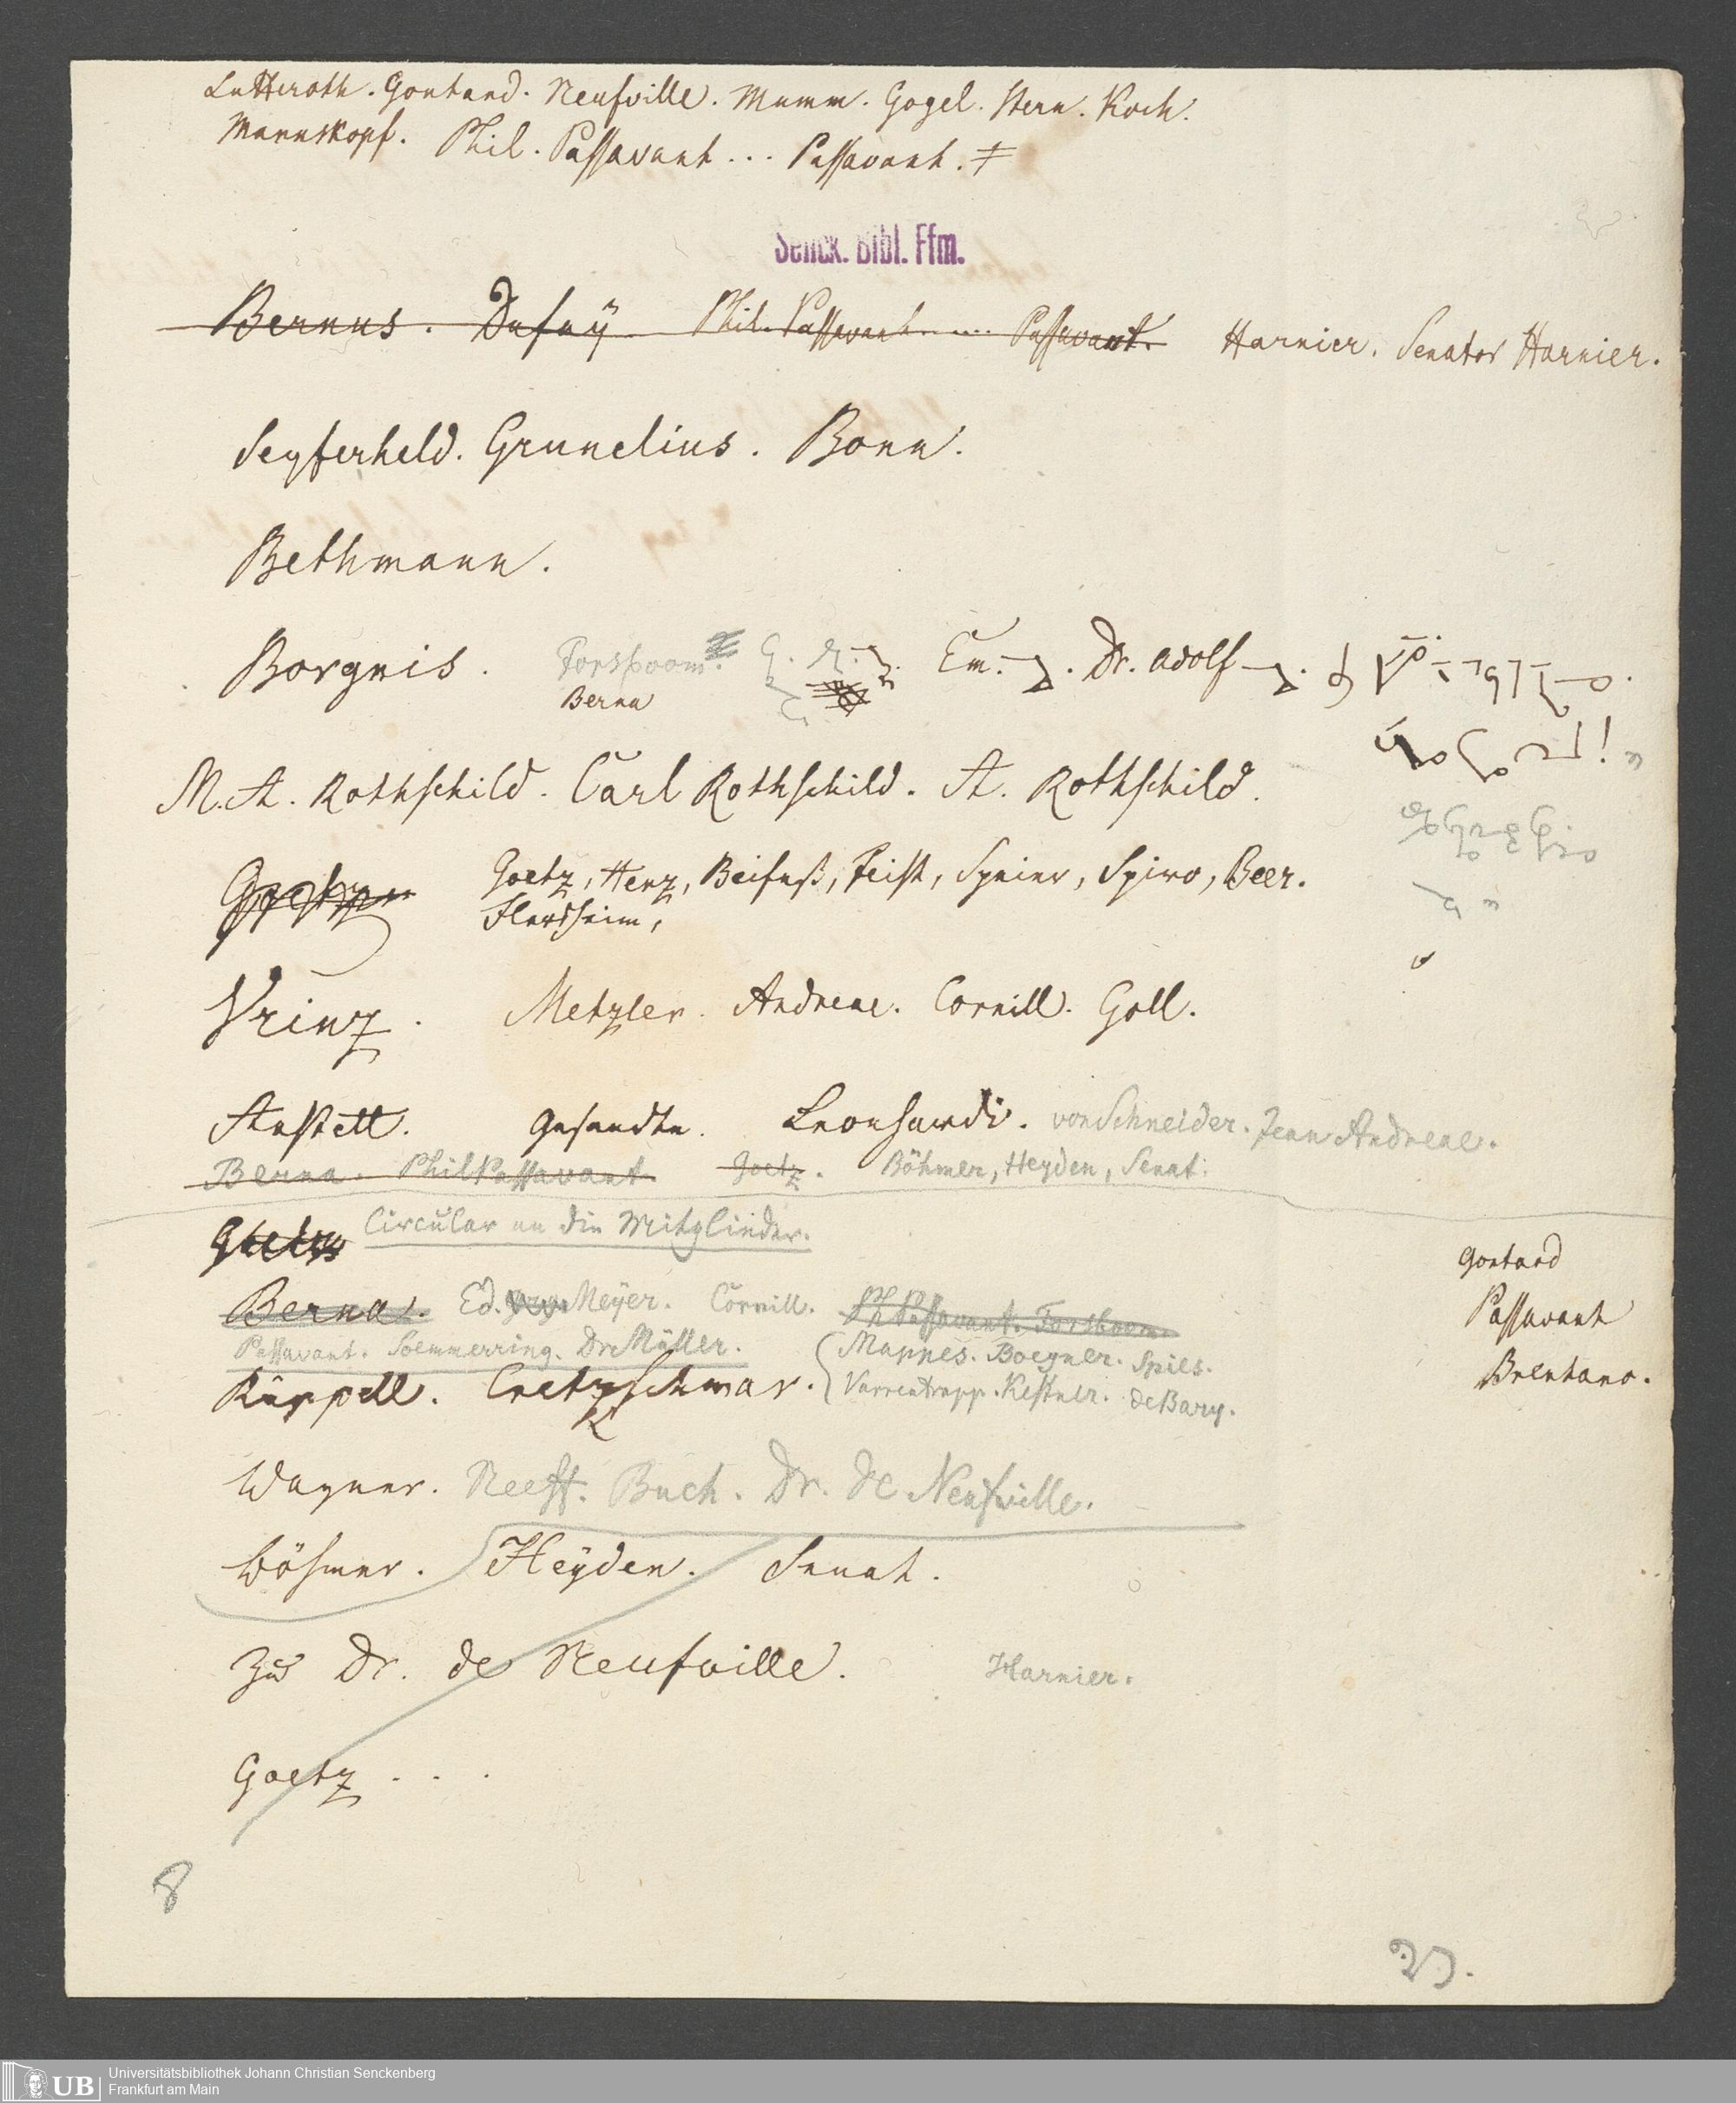 Lutteroth. Gontard. Neufville. Mumm. Gogel. Stern. Koch.
Mannskopf. Phil. Passavant... Passavant. ≠
Senck. Bibl. Ffm.
Bernus. Dufaÿ. Phil. Passavant.... Passavant. Harnier. Senator Harnier.
Seyferheld. Grunelius. Bonn.
Bethmann.
Borgnis. Forsboom. Em. Dr. Adolf
Berna
M. A. Rothschild. Carl Rothschild. A. Rothschild.
Goetz, Herz, Beifuß, Feist, Speier, Spiro, Beer.
Flersheim,
Vrinz. Metzler. Andreae. Cornill. Goll.
Anstett. Gesandte. Leonhardi. von Schneider. Jean Andreae.
Berna. Phil Passavant Goetz. Böhmer, Heyden, Senat.
Circular an die Mitglieder.
Gontard
Berna. Ed. Meÿer. Cornill. Ph Passavant. Forsboom.
Passavant
Passavant. Soemmerring. Dr. Müller. Mappes. Boegner. Spies.
Brentano.
Rüppell. Cretzschmar. Varrentrapp. Kestner. de Bary.
Wagner. Neeff. Buch. Dr. de Neufville.
Böhmer. Heÿden. Senat.
Zu Dr. de Neufville. Harnier.
Goetz...
8
Universitätsbibliothek Johann Christian Senckenberg
UB Frankfurt am Main